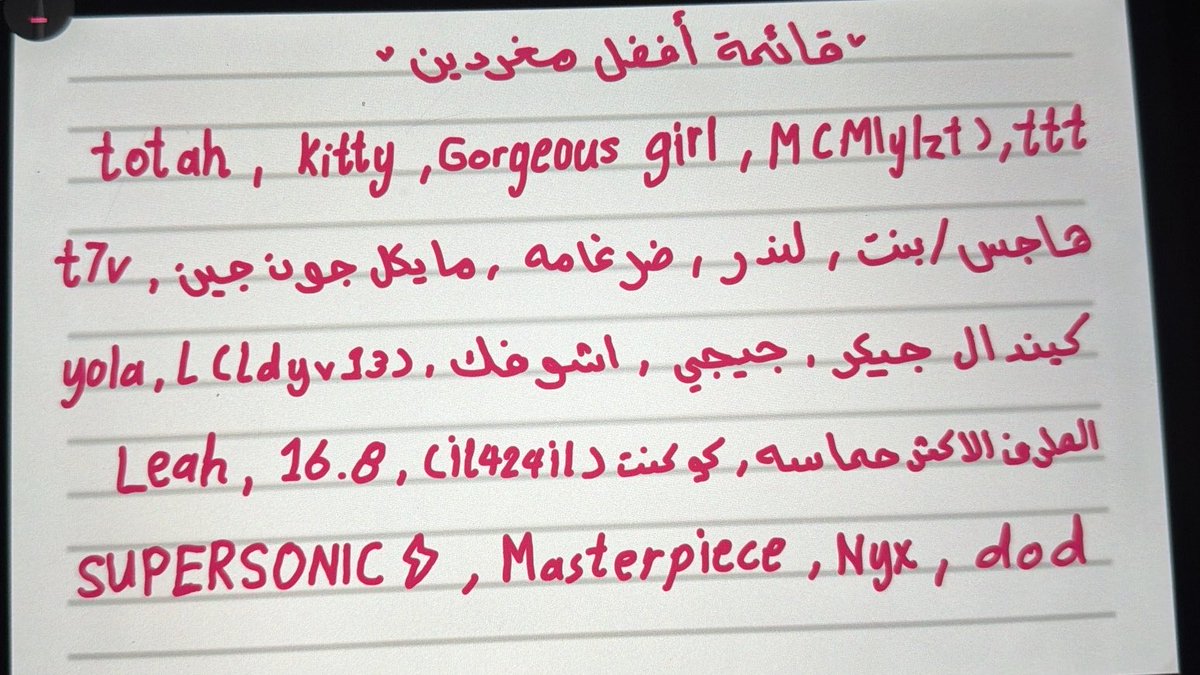 ♥قائمة أفضل مغردين♥
totah, kitty, Gorgeous girl, MCMlylzt), ttt
هاجس/بنت, لندر, ضرغامه, مايكل جون جين, t7v
كيندال جيكر, جيجي, اشوفك, yola, L (ldyv13)
الطرف الاكثر حماسه, كوكنت (il424il), 16.8, Leah
SUPERSONIC⚡, Masterpiece, Nyx, dod